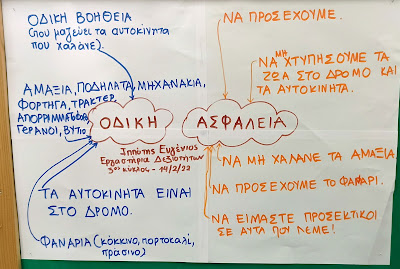 ΟΔΙΚΗ ΒΟΗΘΕΙΑ
(που μαζεύει τα αυτοκίνητα
που χαλάνε).
ΑΜΑΞΙΑ, ΠΟΔΗΛΑΤΑ, ΜΗΧΑΝΑΚΙΑ,
ΦΟΡΤΗΓΑ, ΤΡΑΚΤΕΡ,
ΑΠΟΡΡΙΜΜΑΤΟΦΟΡΑ
ΓΕΡΑΝΟΙ, ΒΥΤΙΟ
ΤΑ ΑΥΤΟΚΙΝΗΤΑ ΕΙΝΑΙ
ΣΤΟ ΔΡΟΜΟ.
ΦΑΝΑΡΙΑ (κόκκινο, πορτοκαλί,
πράσινο)
ΟΔΙΚΗ ΑΣΦΑΛΕΙΑ
Ιππότης Ευγένιος
Εργαστήρια Δεξιοτήτων
3ος κύκλος - 14/2/22
ΝΑ ΠΡΟΣΕΧΟΥΜΕ.
ΝΑ ΜΗ ΧΤΥΠΗΣΟΥΜΕ ΤΑ
ΖΩΑ ΣΤΟ ΔΡΟΜΟ ΚΑΙ
ΤΑ ΑΥΤΟΚΙΝΗΤΑ.
ΝΑ ΜΗ ΧΑΛΑΝΕ ΤΑ ΑΜΑΞΙΑ.
ΝΑ ΠΡΟΣΕΧΟΥΜΕ ΤΟ ΦΑΝΑΡΙ.
ΝΑ ΕΙΜΑΣΤΕ ΠΡΟΣΕΚΤΙΚΟΙ
ΣΕ ΑΥΤΑ ΠΟΥ ΛΕΜΕ!